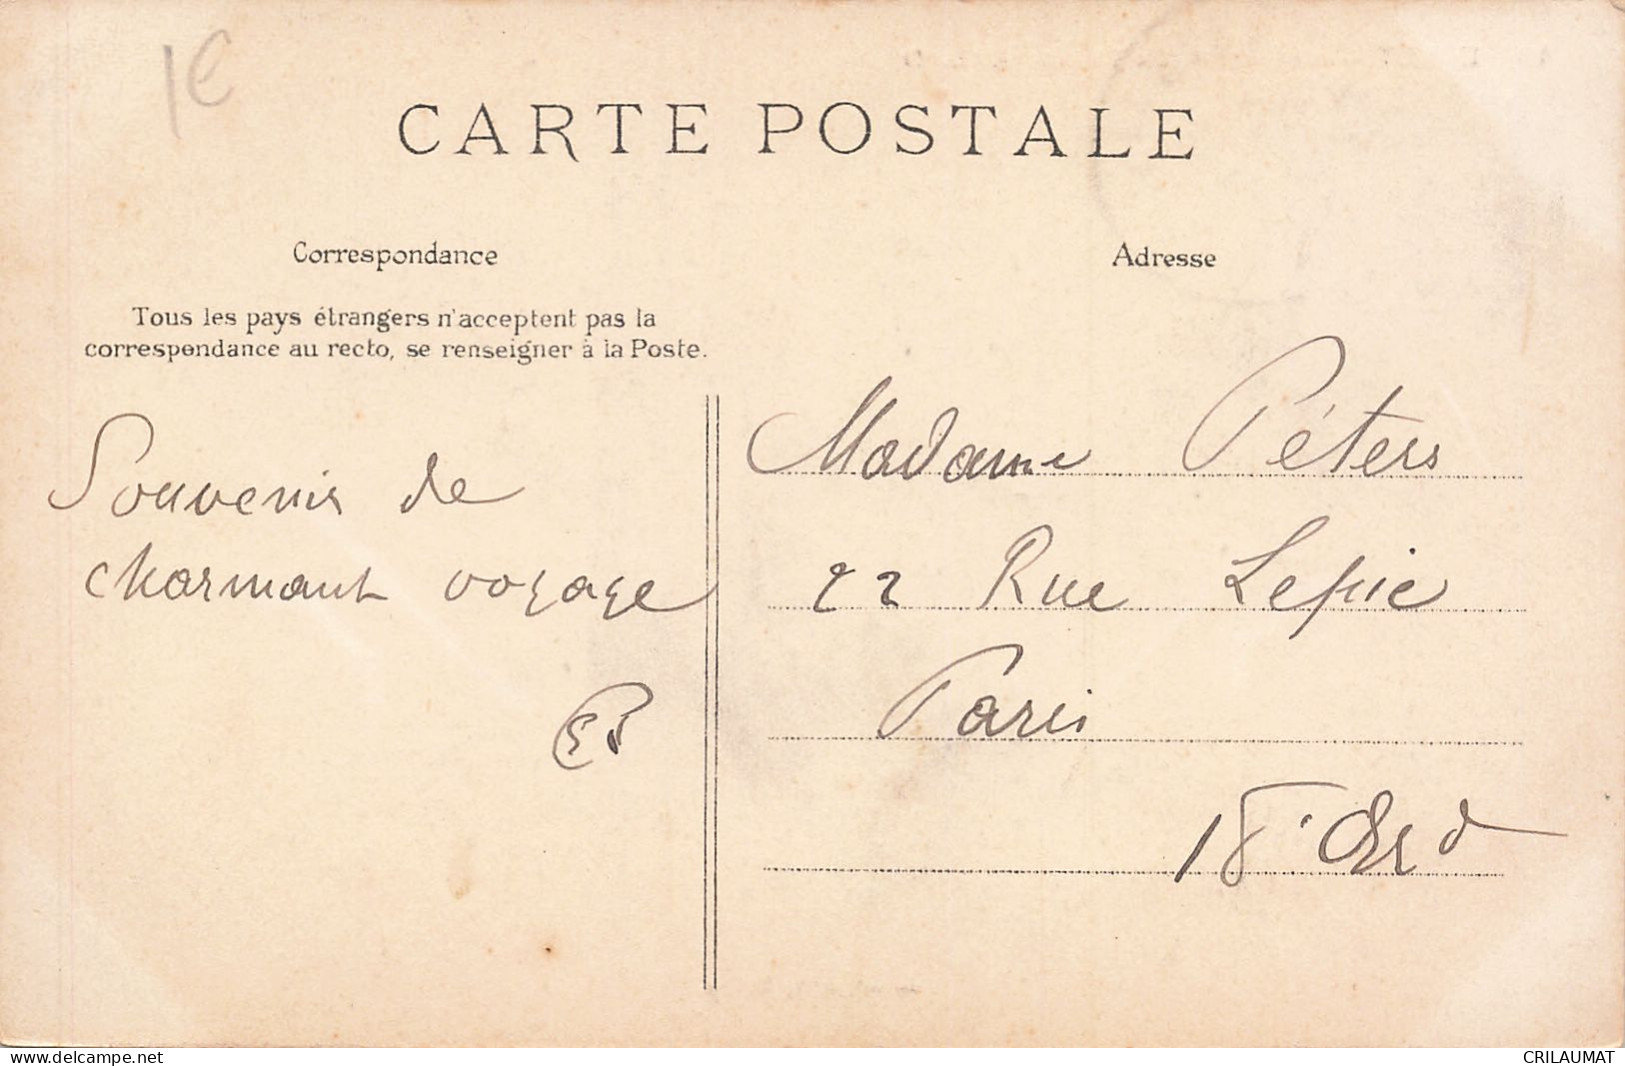 1€
CARTE POSTALE
Correspondance
Tous les pays étrangers n'acceptent pas la
correspondance au recto, se renseigner à la Poste.
Souvenir de
charmant voyage
Adresse
Madame Péters
22 Rue Lepic
Paris
18e Arrd
www.delcampe.net
CRILAUMAT